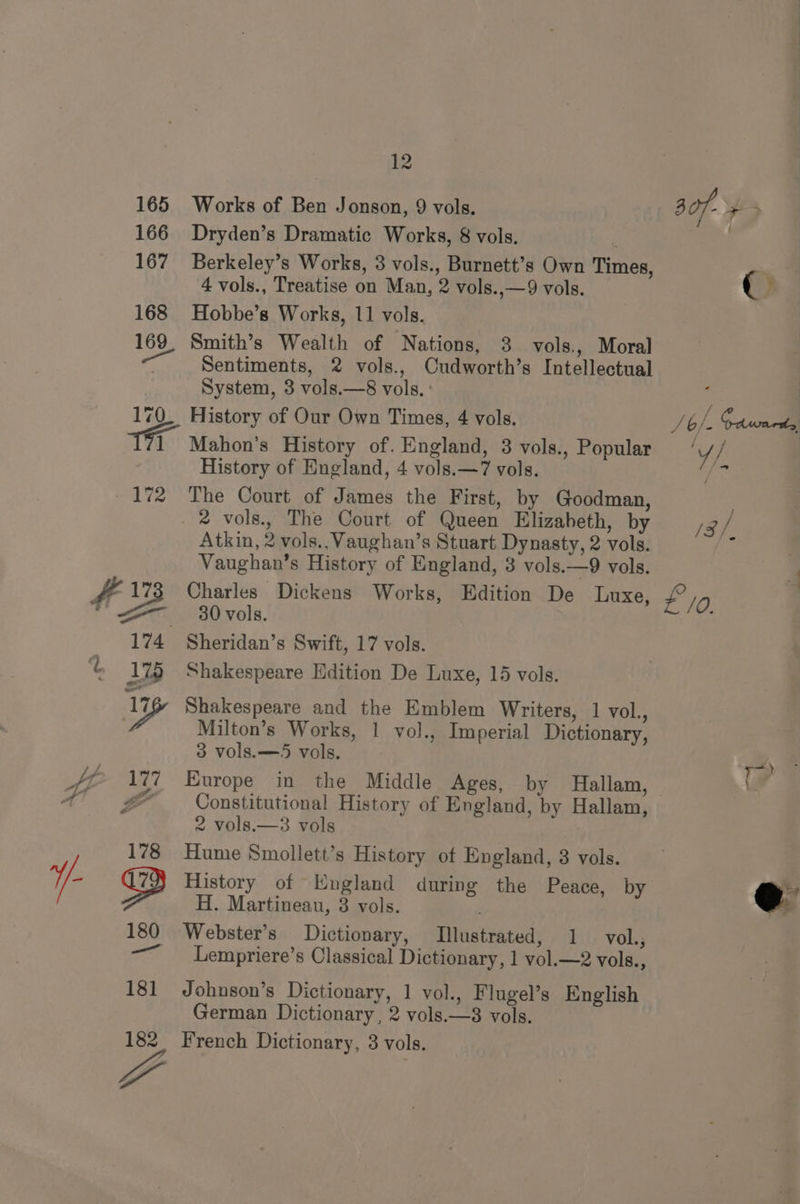 12
165 Works of Ben Jonson, 9 vols. 30/-
166 Dryden's Dramatic Works, 8 vols.
167 Berkeley's Works, 3 vols., Burnett's Own Times,
4 vols., Treatise on Man, 2 vols.,—9 vols.
168 Hobbe's Works, 11 vols.
169 Smith's Wealth of Nations, 3 vols., Moral
Sentiments, 2 vols., Cudworth's Intellectual
System, 3 vols.—8 vols.
170 History of Our Own Times, 4 vols. 16/- Edwards
171 Mahon's History of. England, 3 vols., Popular
History of England, 4 vols.—7 vols.
172 The Court of James the First, by Goodman,
2 vols., The Court of Queen Elizabeth, by
Atkin, 2 vols., Vaughan's Stuart Dynasty, 2 vols. 13/-
Vaughan's History of England, 3 vols.—9 vols.
173 Charles Dickens Works, Edition De Luxe, £10.
30 vols.
174 Sheridan's Swift, 17 vols.
175 Shakespeare Edition De Luxe, 15 vols.
176 Shakespeare and the Emblem Writers, 1 vol.,
Milton's Works, 1 vol., Imperial Dictionary,
3 vols.—5 vols.
177 Europe in the Middle Ages, by Hallam,
Constitutional History of England, by Hallam,
2 vols.—3 vols
178 Hume Smollett's History of England, 3 vols.
179 History of England during the Peace, by
H. Martineau, 3 vols.
180 Webster's Dictionary, Illustrated, 1 vol.,
Lempriere's Classical Dictionary, 1 vol.—2 vols.,
181 Johnson's Dictionary, 1 vol., Flugel's English
German Dictionary, 2 vols.—3 vols.
182 French Dictionary, 3 vols.